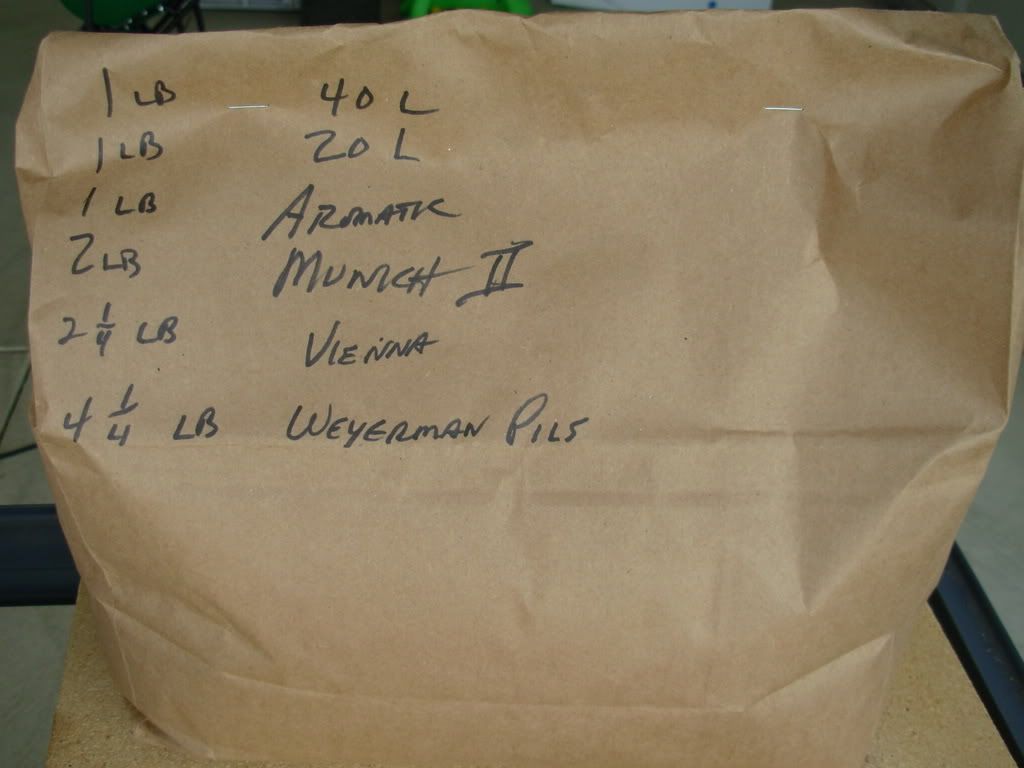 1 LB 40 L
1 LB 20 L
1 LB AROMATIC
2 LB MUNICH II
2 1/4 LB VIENNA
4 1/4 LB WEYERMAN PILS